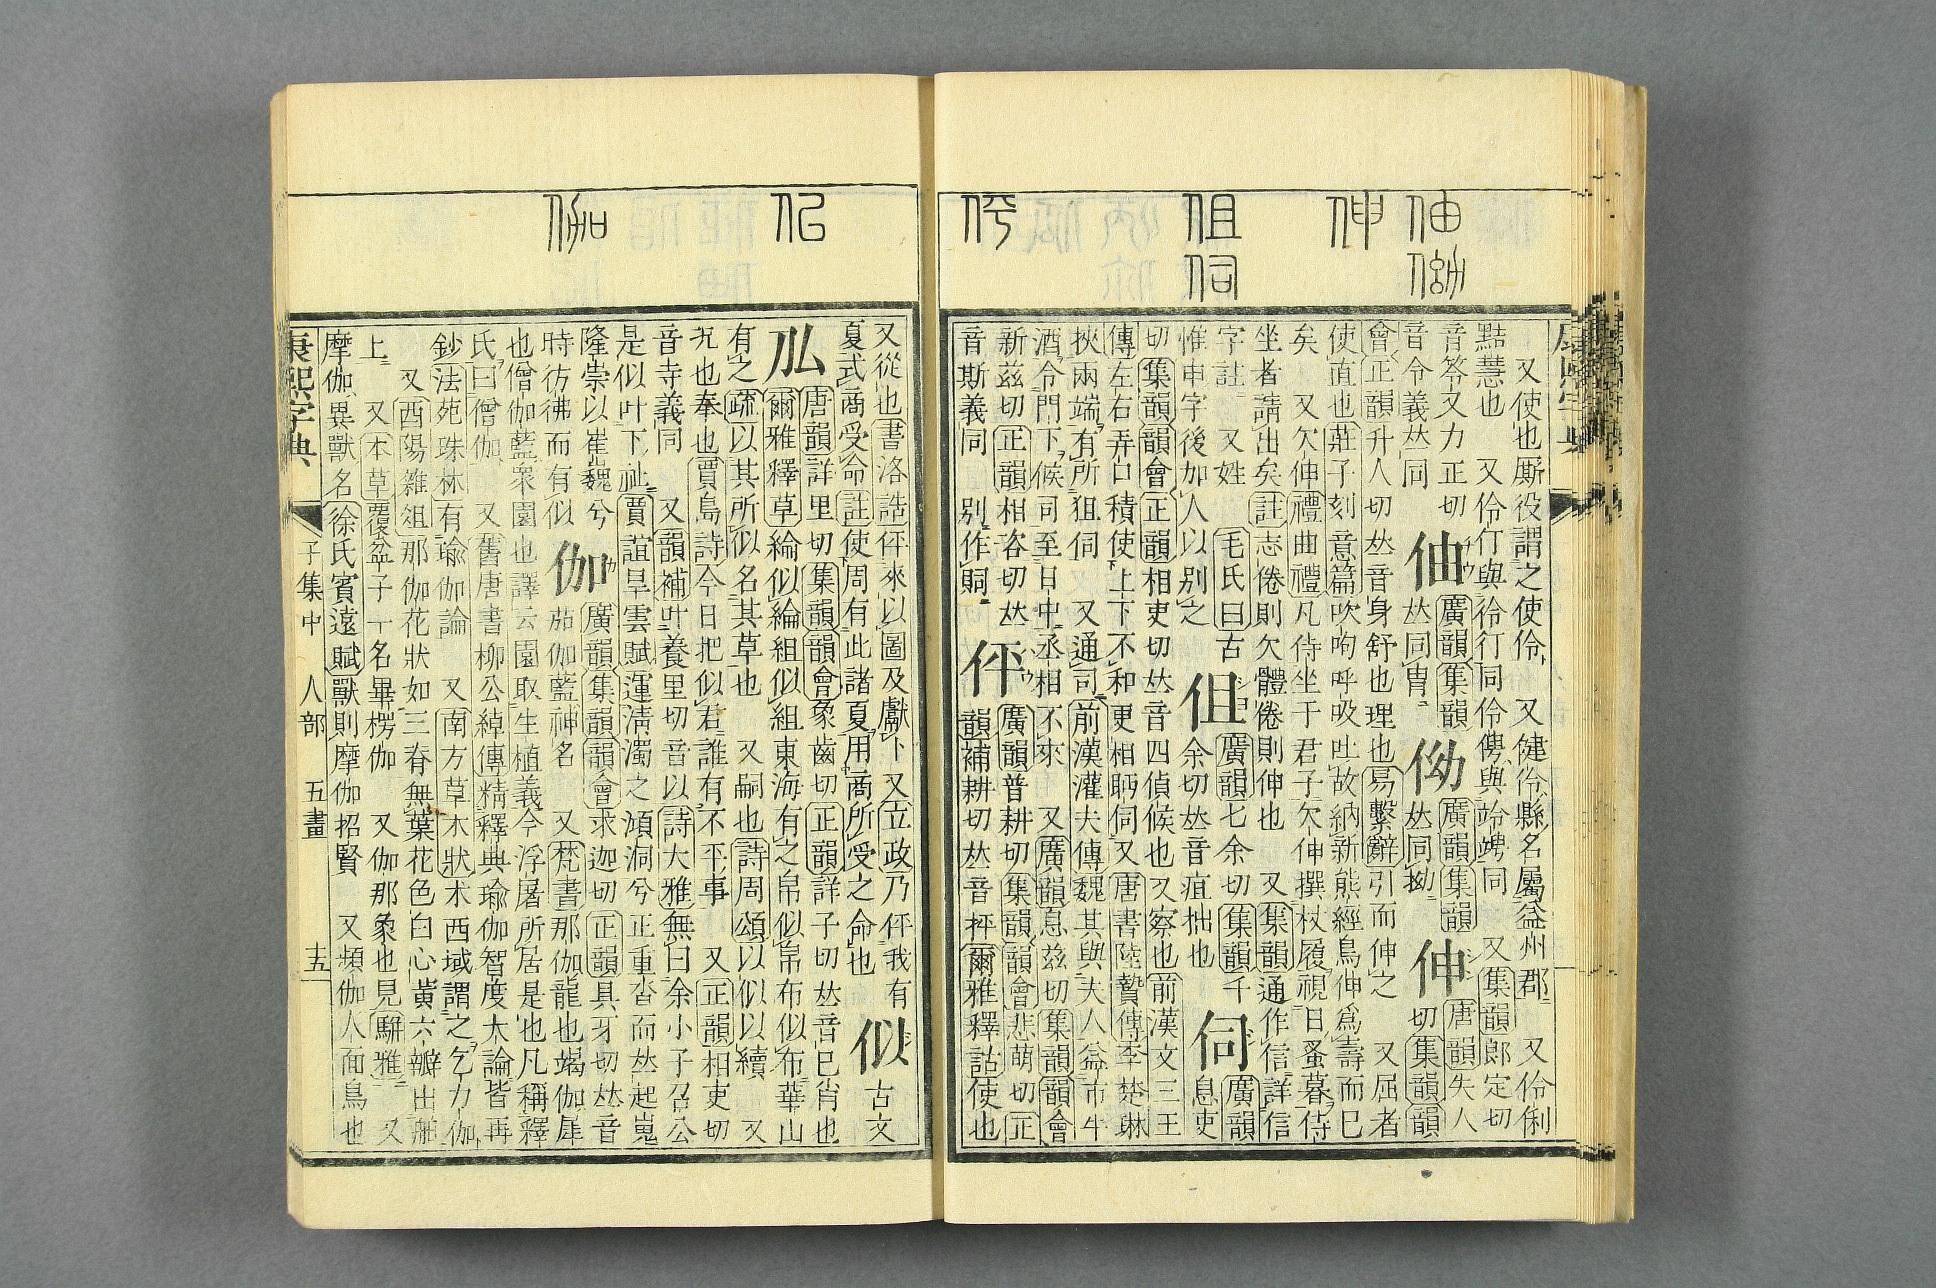 伷㑃
伸
伹伺
伻
又使也廝役謂之使伶 又健伶縣名屬益州郡 又伶俐
黠慧也 又伶仃與彾仃同伶俜與竛竮同 又集韻郎定切
音笭又力正切
音令義𠀤同
伷
廣韻集韻
𠀤同冑
㑃
廣韻集韻
𠀤同拗
伸
唐韻失人
切集韻韻
會正韻升人切𠀤音身舒也理也易繫辭引而伸之 又屈者
使直也莊子刻意篇吹呴呼吸吐故納新熊經鳥伸爲壽而已
矣 又欠伸禮曲禮凡侍坐于君子欠伸撰杖履視日蚤暮侍
坐者請出矣註志倦則欠體倦則伸也 又集韻通作信詳信
字註 又姓 毛氏曰古
惟申字後加人以別之
伹
廣韻七余切集韻千
余切𠀤音疽拙也
伺
廣韻
息吏
切集韻韻會正韻相吏切𠀤音四偵候也又察也前漢文三王
傳左右弄口積使上下不和更相眄伺又唐書陸贄傳李楚琳
挾兩端有所狙伺 又通司前漢灌夫傳魏其與夫人益市牛
酒令門下候伺至日中丞相不來 又廣韻息兹切集韻韻會
新兹切正韻相咨切𠀤
音斯義同 別作覗
伻
廣韻普耕切集韻韻會悲萌切正
韻補耕切𠀤音抨爾雅釋詁使也
似
伽
又從也書洛誥伻來以圖及獻卜又立政乃伻我有
夏式商受命註使周有此諸夏用商所受之命也
似
古文
㕕
唐韻詳里切集韻韻會象齒切正韻詳子切𠀤音巳肖也
爾雅釋草綸似綸組似組東海有之帛似帛布似布華山
有之疏以其所似名其草也 又嗣也詩周頌以似以續 又
尣也奉也賈島詩今日把似君誰有不平事 又正韻相吏切
音寺義同 又韻補叶養里切音以詩大雅無曰余小子召公
是似叶下祉賈誼旱雲賦運淸濁之澒洞兮正重沓而𠀤起嵬
隆崇以崔巍兮
時彷彿而有似
伽
廣韻集韻韻會求迦切正韻具牙切𠀤音
茄伽藍神名 又梵書那伽龍也竭伽犀
也僧伽藍衆園也譯云園取生植義今浮屠所居是也凡稱釋
氏曰僧伽 又舊唐書柳公綽傳精釋典瑜伽智度大論皆再
鈔法苑珠林有瑜伽論 又南方草木狀朮西域謂之乞力伽
又酉陽雜俎那伽花狀如三春無葉花色白心黃六瓣出舶
上 又本草覆盆子一名畢楞伽 又伽那象也見騈雅 又
摩伽異獸名徐氏賓遠賦獸則摩伽招賢 又頻伽人面鳥也
康熙字典
子集中 人部 五畫
十五